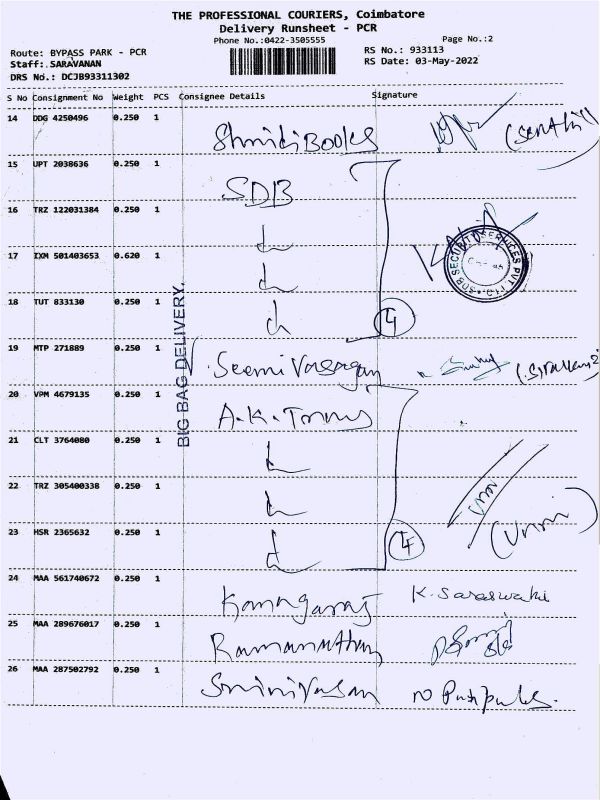 THE PROFESSIONAL COURIERS, Coimbatore
Delivery Runsheet - PCR
Phone No.:0422-3505555 Page No.:2
Route: BYPASS PARK - PCR RS No.: 933113
Staff: SARAVANAN RS Date: 03-May-2022
DRS No.: DCJB93311302
S No Consignment No Weight PCS Consignee Details Signature
14 DDG 4250496 0.250 1 Books
15 UPT 2038636 0.250 1 SDB
16 TRZ 122031384 0.250 1
17 IXM 501403653 0.620 1
SDB SECURITY SERVICES PVT. LTD.
18 TUT 833130 0.250 1 4
BIG BAG DELIVERY.
19 MTP 271889 0.250 1
20 VPM 4679135 0.250 1 A.K.
21 CLT 3764080 0.250 1
22 TRZ 305400338 0.250 1
23 HSR 2365632 0.250 1 4
24 MAA 561740672 0.250 1 Kanagaraj K. Saraswathi
25 MAA 289676017 0.250 1 Ramanathan
26 MAA 287502792 0.250 1 Srinivasan